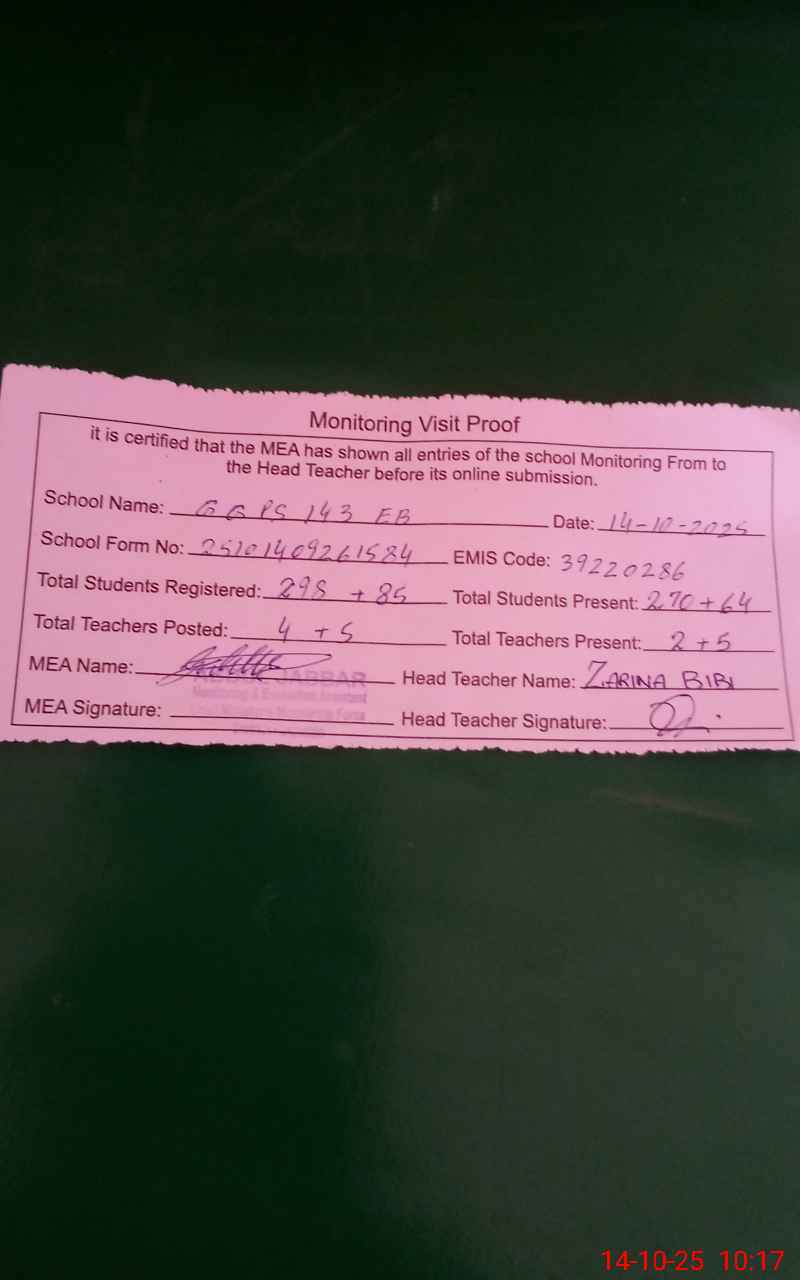 Monitoring Visit Proof
it is certified that the MEA has shown all entries of the school Monitoring From to
the Head Teacher before its online submission.
School Name: GGPS 143 EB Date: 14-10-2025
School Form No: 25101409261584 EMIS Code: 39220286
Total Students Registered: 298 + 85 Total Students Present: 270 + 64
Total Teachers Posted: 4 + 5 Total Teachers Present: 2 + 5
MEA Name: JABBAR Head Teacher Name: ZARINA BIBI
Monitoring & Evaluation Assistant
MEA Signature: Head Teacher Signature:
14-10-25 10:17